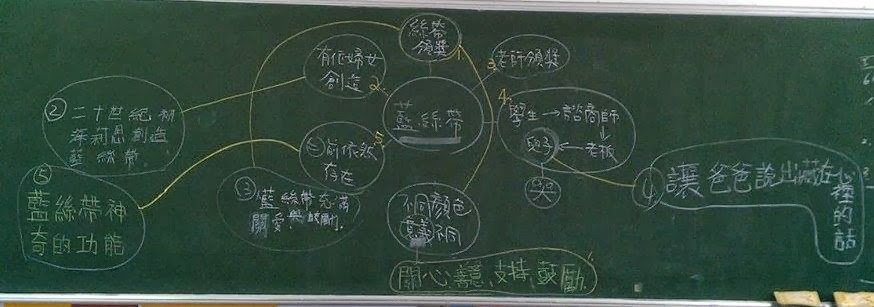 絲帶
頒獎
1.
有位婦女
創造
2.
3.
老師頒獎
藍絲帶
4.
學生→諮商師
↓
兒子←老板
哭哭
5.
目前依然
存在
不同顏色
意義不同
關心、善意、支持、鼓勵
②
二十世紀初
莉思創造
藍絲帶
⑤
藍絲帶神
奇的功能
③
藍絲帶充滿
關愛與鼓勵
④
讓爸爸說出藏在心裡的話